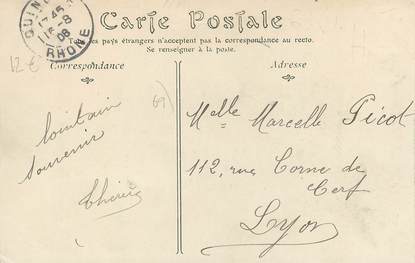 Carte Postale
17-45
16-8
08
RHONE
Tous les pays étrangers n'acceptent pas la correspondance au recto.
Se renseigner à la poste.
12 €
Correspondance
Adresse
69
lointain
souvenir
Melle Marcelle Picot
112, rue Corne de
Cerf
Lyon